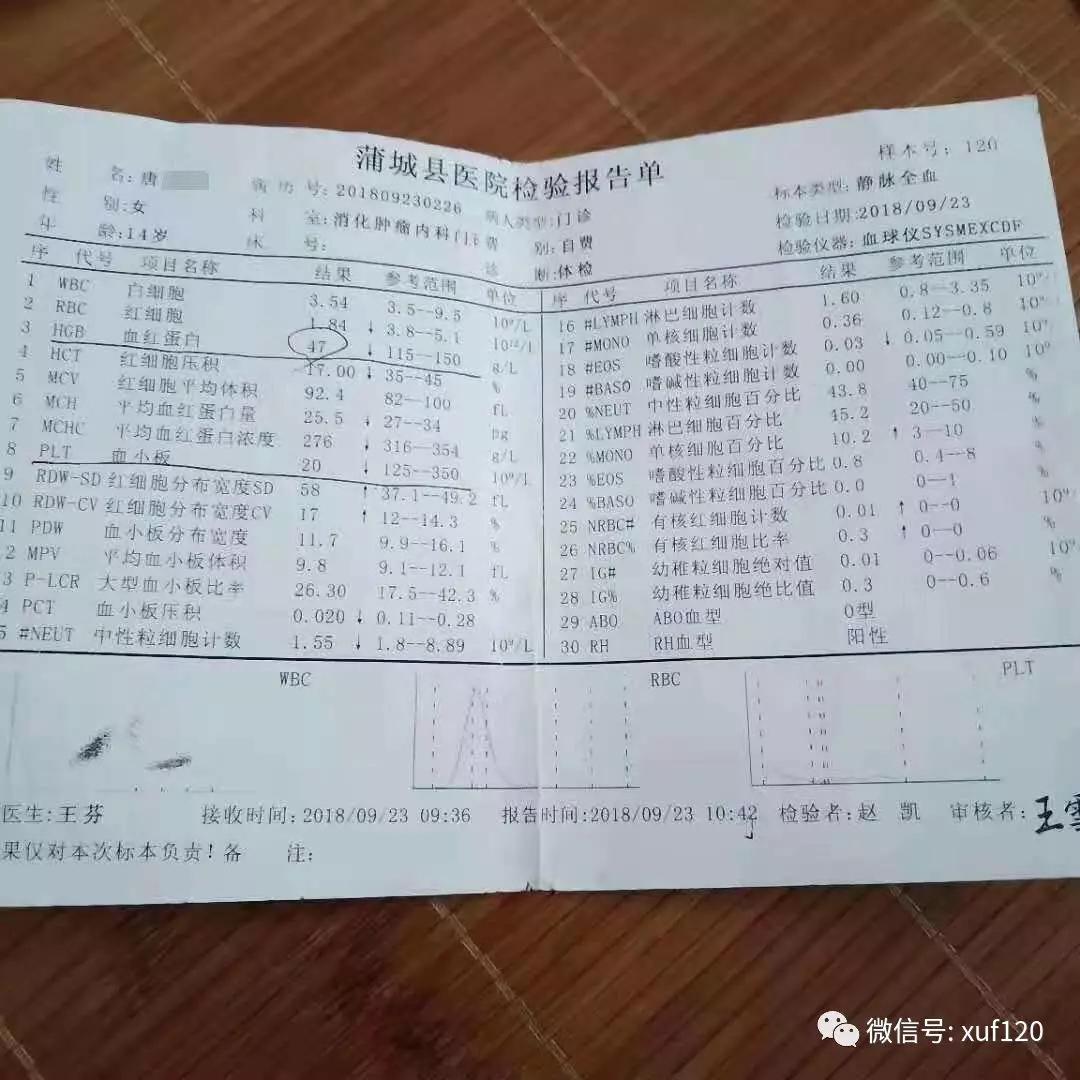 蒲城县医院检验报告单
样本号: 120
姓 名:唐 病历号:201809230226 病人类型:门诊 标本类型:静脉全血
性 别:女 科 室:消化肿瘤内科门诊 费 别:自费 检验日期:2018/09/23
年 龄:14岁 床 号: 诊 断:体检 检验仪器:血球仪SYSMEXCDF
序 代号 项目名称 结果 参考范围 单位
1 WBC 白细胞 3.54 3.5--9.5 10⁹/L
2 RBC 红细胞 1.84 ↓ 3.8--5.1 10¹²/L
3 HGB 血红蛋白 47 ↓ 115--150 g/L
4 HCT 红细胞压积 17.00 ↓ 35--45 %
5 MCV 红细胞平均体积 92.4 82--100 fL
6 MCH 平均血红蛋白量 25.5 ↓ 27--34 pg
7 MCHC 平均血红蛋白浓度 276 ↓ 316--354 g/L
8 PLT 血小板 20 ↓ 125--350 10⁹/L
9 RDW-SD 红细胞分布宽度SD 58 ↑ 37.1--49.2 fL
10 RDW-CV 红细胞分布宽度CV 17 ↑ 12--14.3 %
11 PDW 血小板分布宽度 11.7 9.9--16.1 %
2 MPV 平均血小板体积 9.8 9.1--12.1 fL
3 P-LCR 大型血小板比率 26.30 17.5--42.3 %
4 PCT 血小板压积 0.020 ↓ 0.11--0.28
5 #NEUT 中性粒细胞计数 1.55 ↓ 1.8--8.89 10⁹/L
序 代号 项目名称 结果 参考范围 单位
16 #LYMPH 淋巴细胞计数 1.60 0.8--3.35 10⁹
17 #MONO 单核细胞计数 0.36 0.12--0.8 10⁹
18 #EOS 嗜酸性粒细胞计数 0.03 ↓ 0.05--0.59 10⁹
19 #BASO 嗜碱性粒细胞计数 0.00 0.00--0.10 10⁹
20 %NEUT 中性粒细胞百分比 43.8 40--75 %
21 %LYMPH 淋巴细胞百分比 45.2 20--50 %
22 %MONO 单核细胞百分比 10.2 ↑ 3--10 %
23 %EOS 嗜酸性粒细胞百分比 0.8 0.4--8 %
24 %BASO 嗜碱性粒细胞百分比 0.0 0--1 %
25 NRBC# 有核红细胞计数 0.01 ↑ 0--0 10⁹
26 NRBC% 有核红细胞比率 0.3 ↑ 0--0 %
27 IG# 幼稚粒细胞绝对值 0.01 0--0.06 10⁹
28 IG% 幼稚粒细胞绝比值 0.3 0--0.6 %
29 ABO ABO血型 O型
30 RH RH血型 阳性
WBC RBC PLT
医生:王芬 接收时间:2018/09/23 09:36 报告时间:2018/09/23 10:42 检验者:赵 凯 审核者:王
果仅对本次标本负责! 备 注:
微信号: xuf120